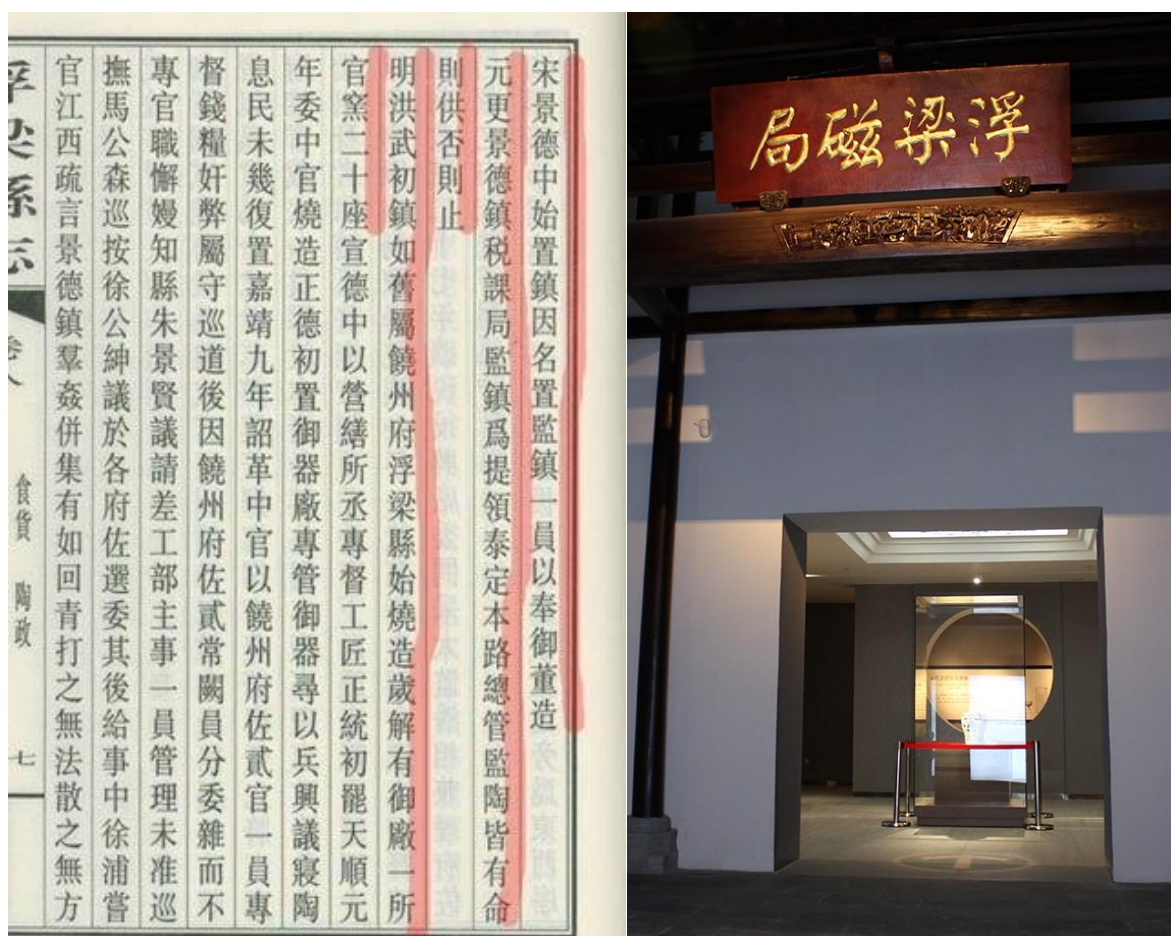 宋景德中始置鎮因名置監鎮一員以奉御董造
元更景德鎮税課局監鎮爲提領泰定本路總管監陶皆有命
則供否則止
明洪武初鎮如舊屬饒州府浮梁縣始燒造歲解有御廠一所
官窯二十座宣德中以營繕所丞專督工匠正統初罷天順元
年委中官燒造正德初置御器廠專管御器尋以兵興議寢陶
息民未幾復置嘉靖九年詔革中官以饒州府佐貳官一員專
督錢糧奸弊屬守巡道後因饒州府佐貳常闕員分委雜而不
專官職懈嫚知縣朱景賢議請差工部主事一員管理未准巡
撫馬公森巡按徐公紳議於各府佐選委其後給事中徐浦嘗
官江西疏言景德鎮羣姦併集有如回青打之無法散之無方
浮梁縣志
卷八
食貨 陶政
七
浮梁磁局